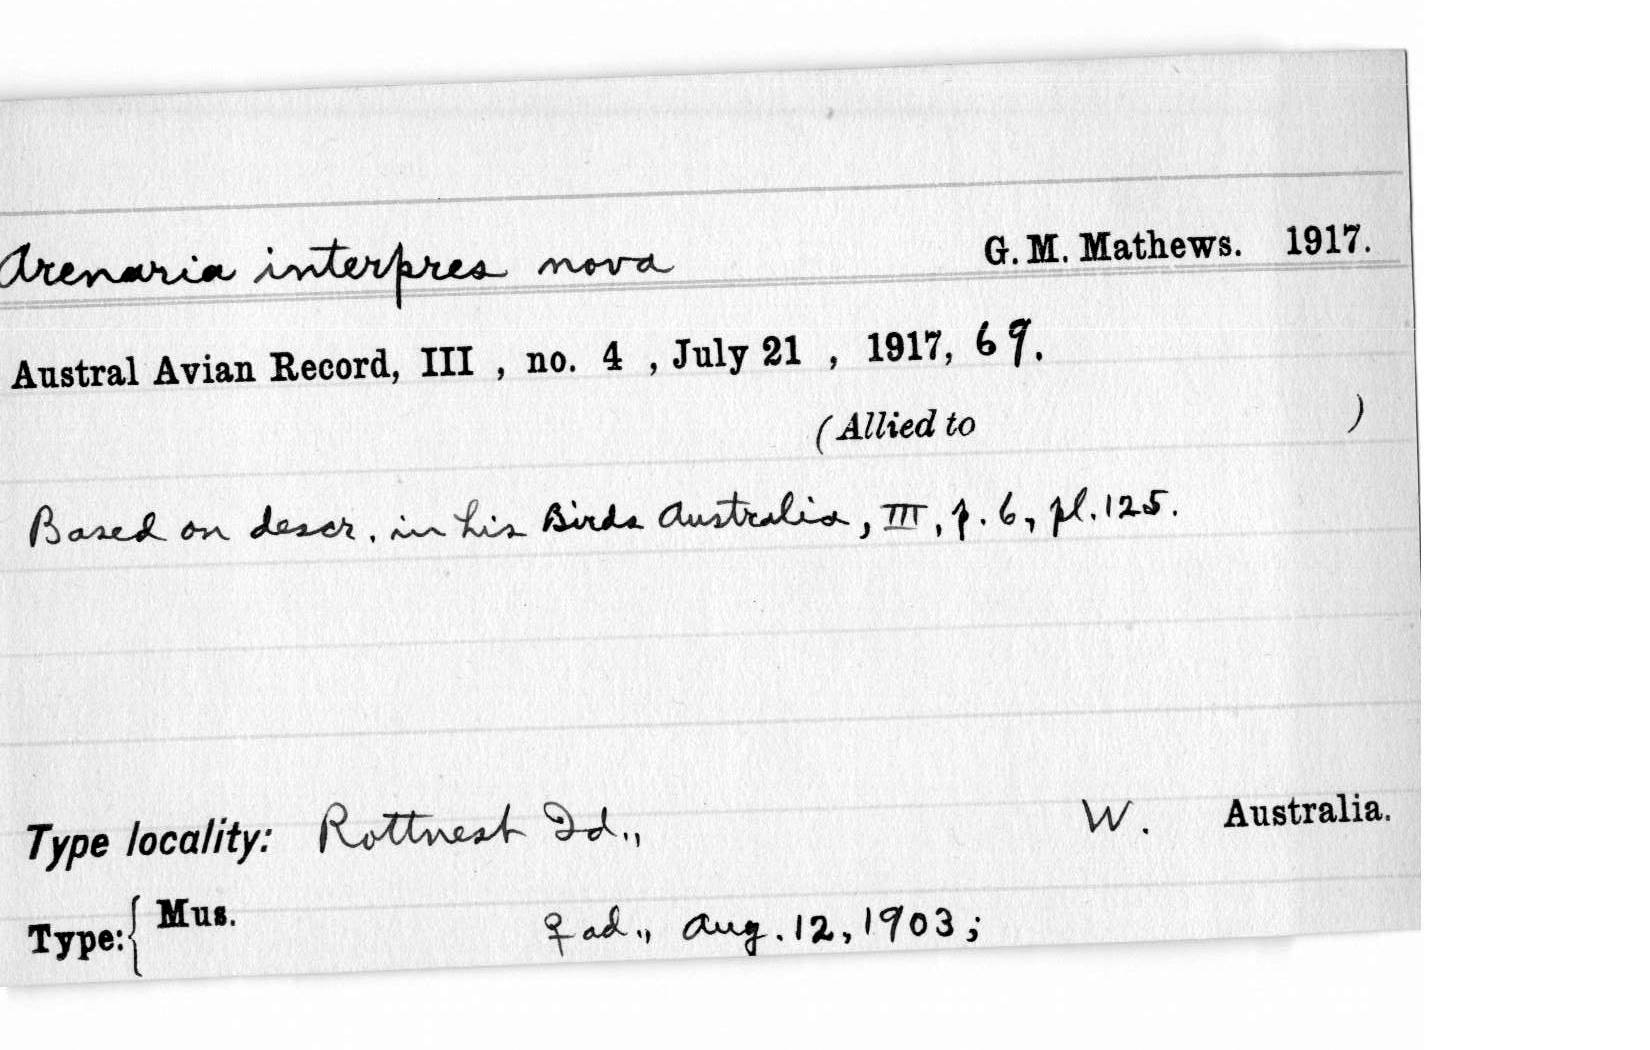 Arenaria interpres nova G. M. Mathews. 1917.
Austral Avian Record, III , no. 4 , July 21 , 1917, 69.
(Allied to )
Based on descr. in his Birds Australia, III, p. 6, pl. 125.
Type locality: Rottnest Id., W. Australia.
Type: { Mus. ♀ ad., Aug. 12, 1903;